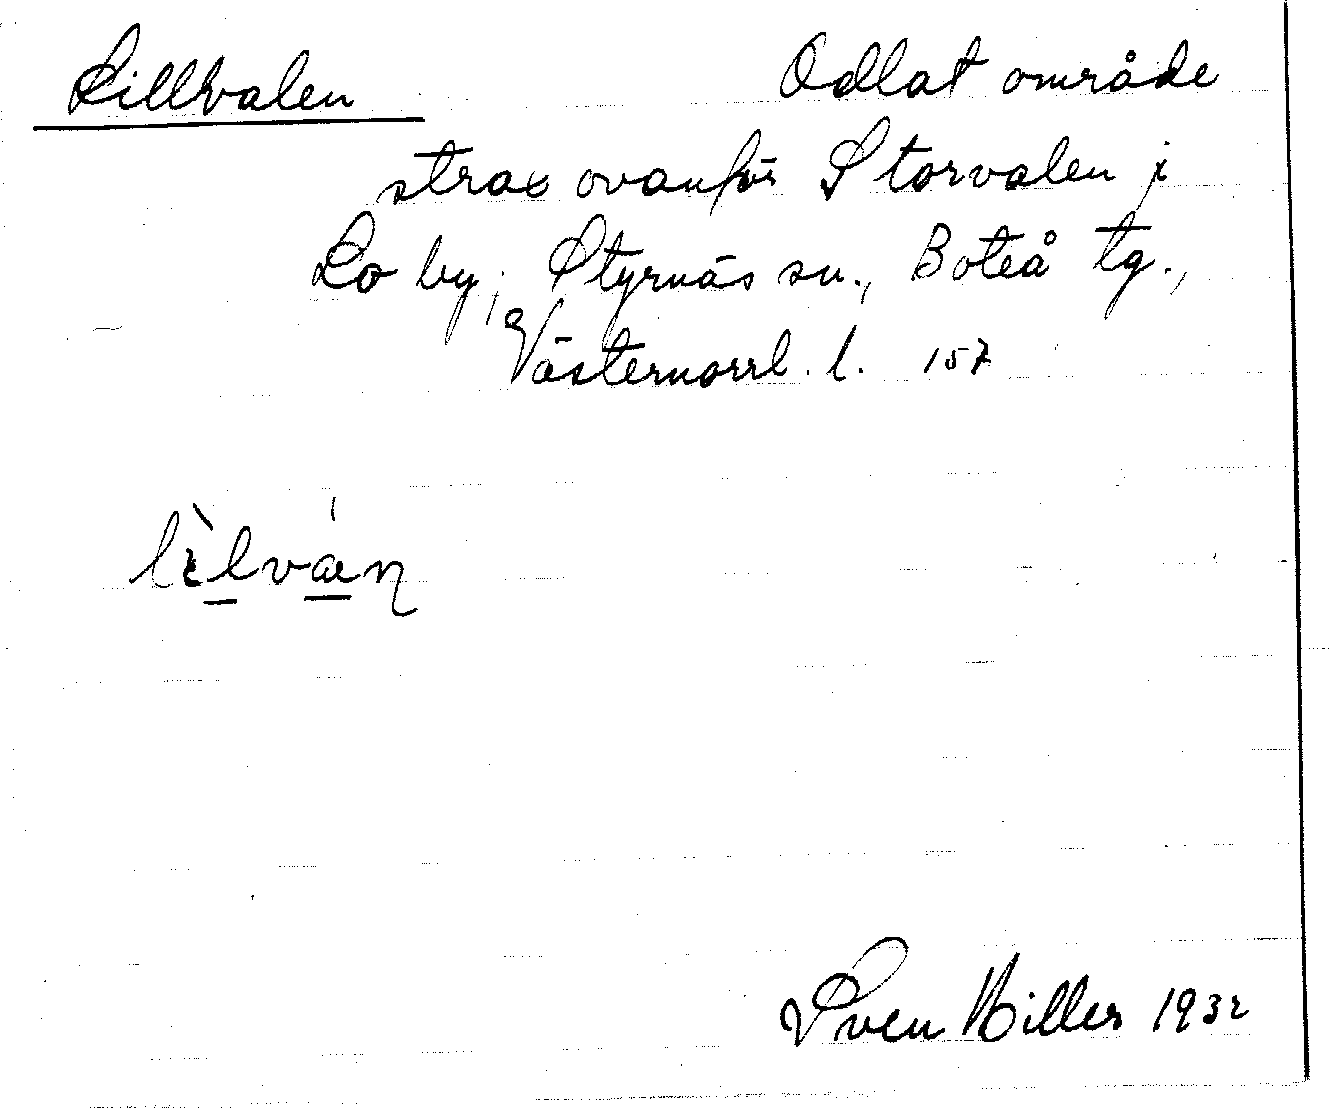 Lillvalen Odlat område
strax ovanför Storvalen i
Lo by, Styrnäs sn., Boteå tg.,
Västernorrl. l. 157
lìlván
Sven Hiller 1932